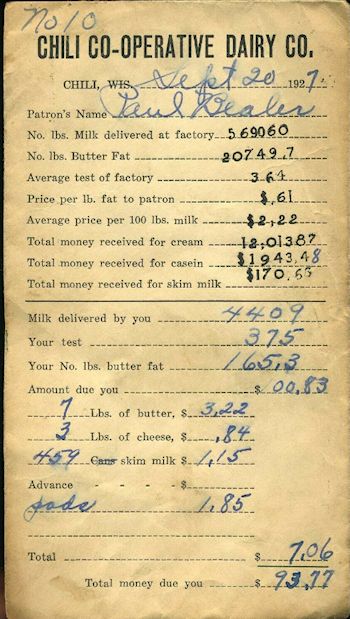 No 10
CHILI CO-OPERATIVE DAIRY CO.
CHILI, WIS. Sept 20 1927.
Patron's Name Paul
No. lbs. Milk delivered at factory 569060
No. lbs. Butter Fat 20749.7
Average test of factory 3.64
Price per lb. fat to patron $.61
Average price per 100 lbs. milk $2,22
Total money received for cream 12,013.87
Total money received for casein $1943.48
Total money received for skim milk $170.63
Milk delivered by you 4409
Your test 375
Your No. lbs. butter fat 165.3
Amount due you $ 00.83
7 Lbs. of butter, $ 3.22
3 Lbs. of cheese, $ .84
459 Cans skim milk $ 1.15
Advance - - - - $
1.85
Total $ 7.06
Total money due you $ 93.77